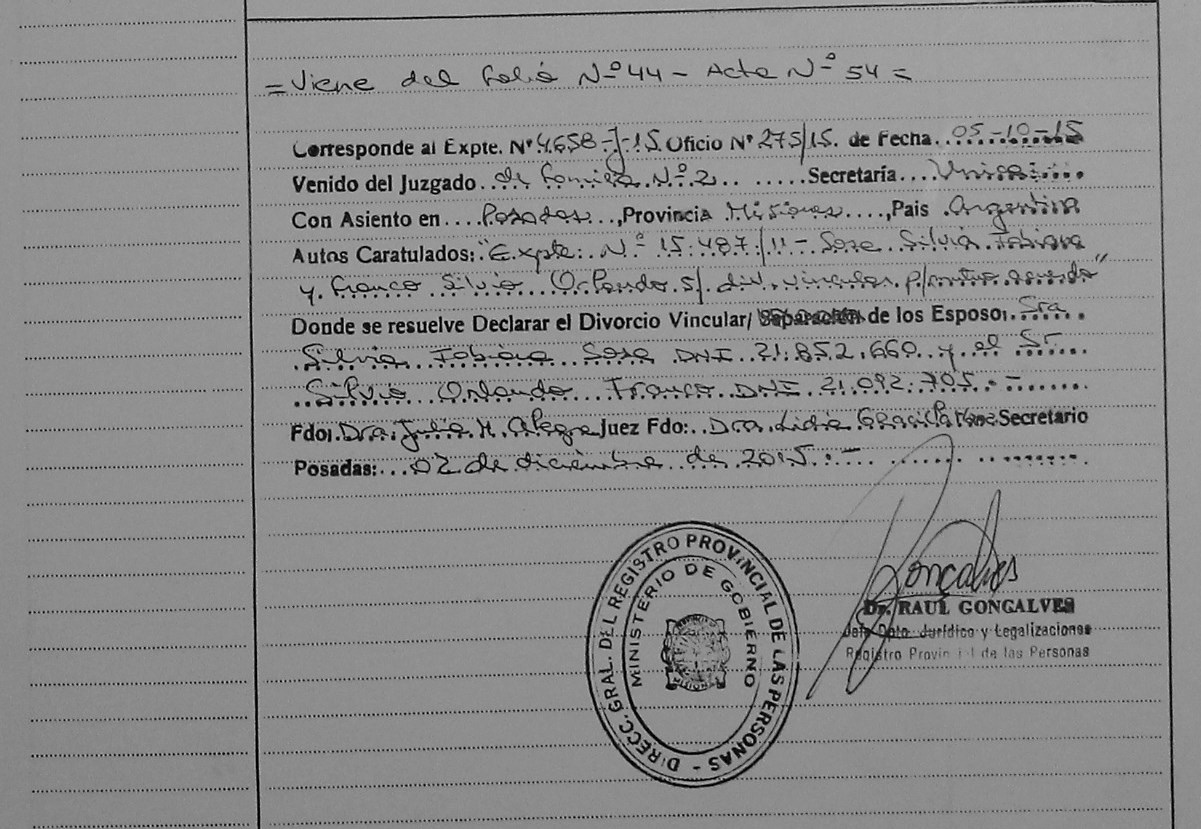 = Viene del folio Nº 44 - Acta Nº 54 =
Corresponde al Expte. Nº 4.658-J-15. Oficio Nº 275/15. de Fecha. 05-10-15
Venido del Juzgado de Familia Nº 2 Secretaría
Con Asiento en Posadas, Provincia Misiones, Pais Argentina
Autos Caratulados: "Expte: Nº 15.487/11 - Sosa Silvia Fabiana
y Franco Silvio Orlando s/ div. vincular p/ mutuo acuerdo"
Donde se resuelve Declarar el Divorcio Vincular/ Separación de los Esposo: Sra.
Silvia Fabiana Sosa DNI 21.852.660 y el Sr.
Silvio Orlando Franco DNI 21.092.705.-
Fdo: Dra. Julia H. Alegre Juez Fdo: Dra. Lidia Secretario
Posadas: 02 de diciembre de 2015.-
DIRECC. GRAL. DEL REGISTRO PROVINCIAL DE LAS PERSONAS -
MINISTERIO DE GOBIERNO
MISIONES
Gonçalves
Dr. RAUL GONCALVES
Jefe Dpto. Jurídico y Legalizaciones
Registro Provincial de las Personas